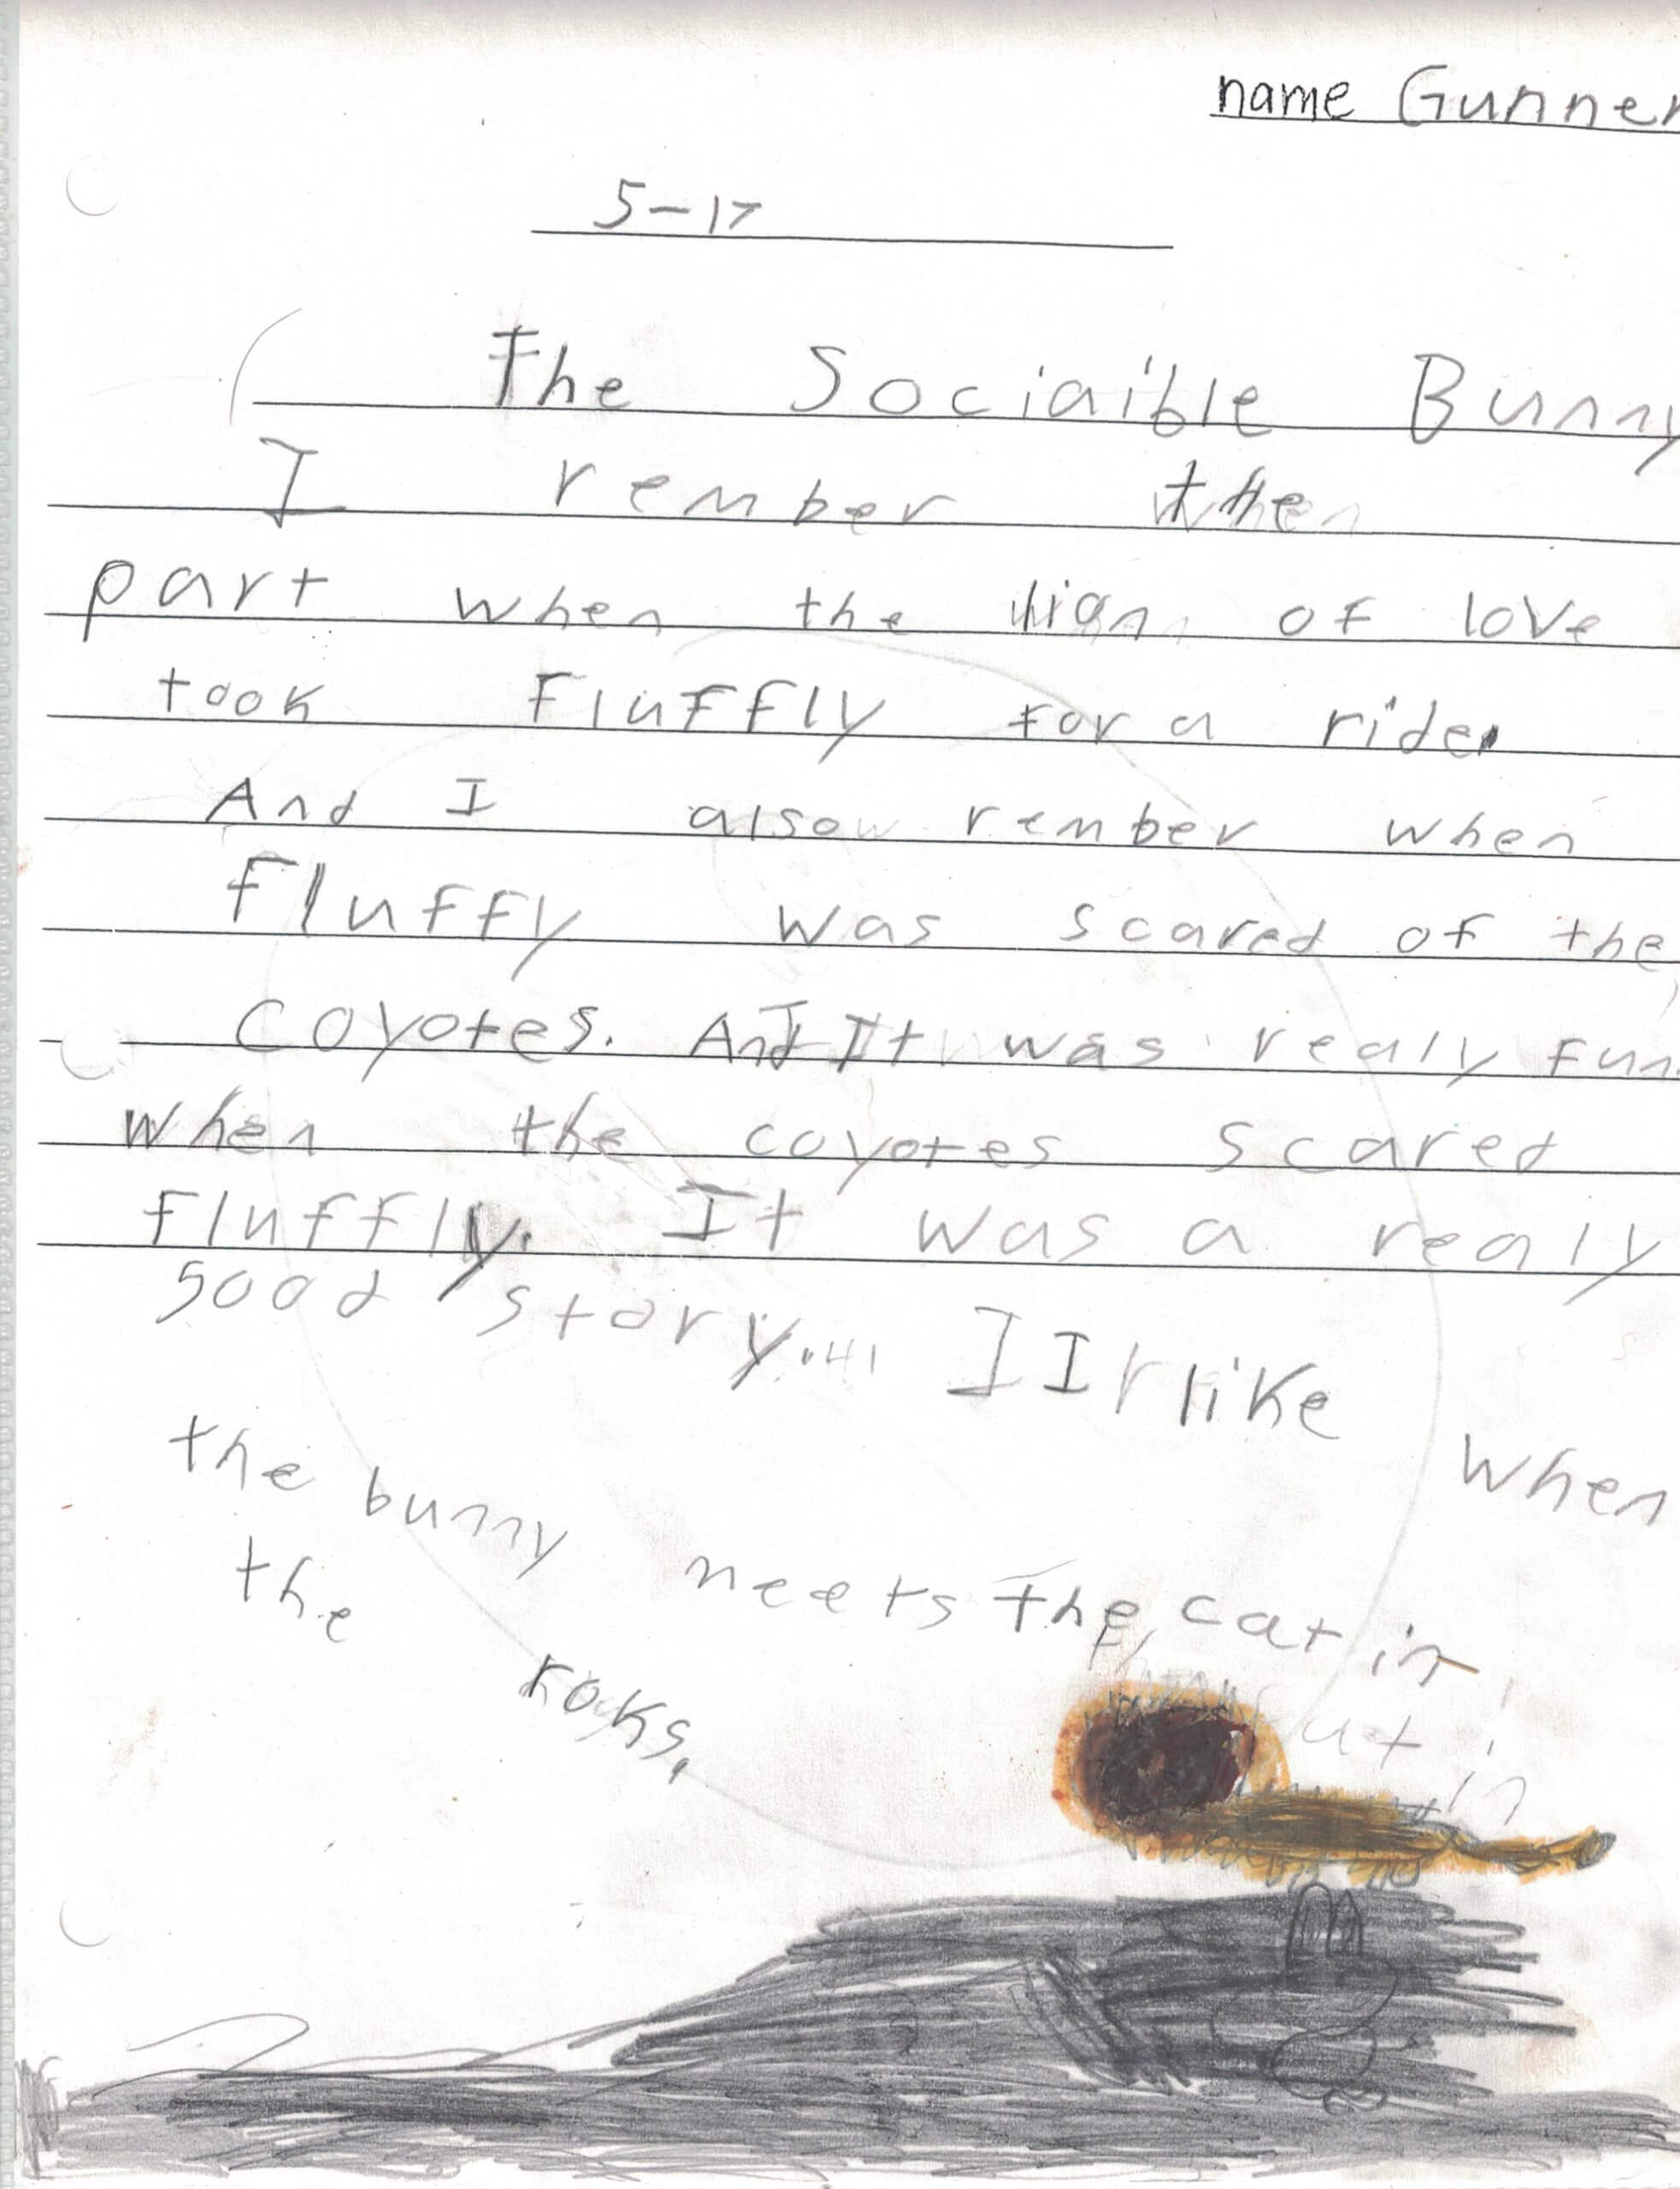 name Gunner
5-17
The Sociaible Bunny
I rember then
part when the lian of love
took Fluffly for a ride.
And I also rember when
Fluffy was scared of the
Coyotes. And It was realy fun
when the coyotes scared
Fluffly. It was a realy
good story. I I like when
the bunny meets the cat in
the roks.